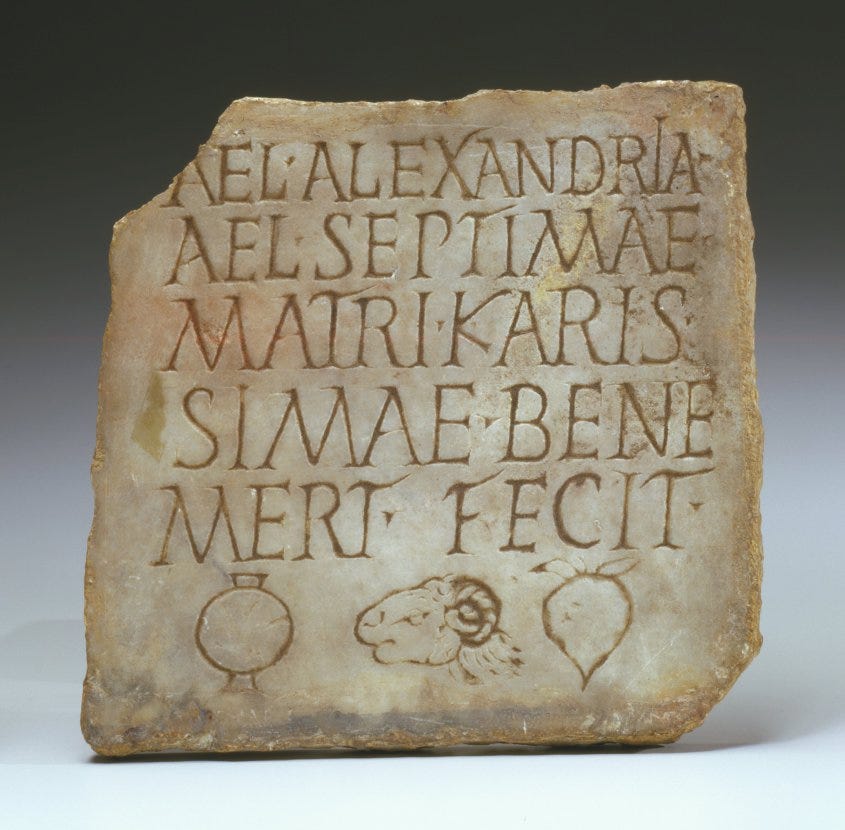 AEL·ALEXANDRIA·
AEL·SEPTIMAE·
MATRI·KARIS
SIMAE·BENE
MERT·FECIT·